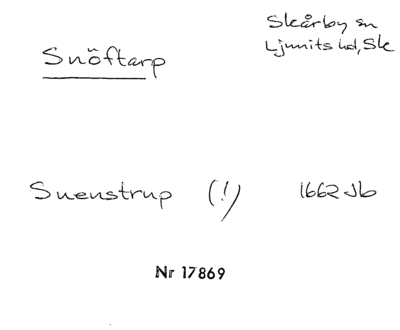 Snöftarp
Skårby sn
Ljunits hd, Sk
Suenstrup (!) 1662 Jb
Nr 17869